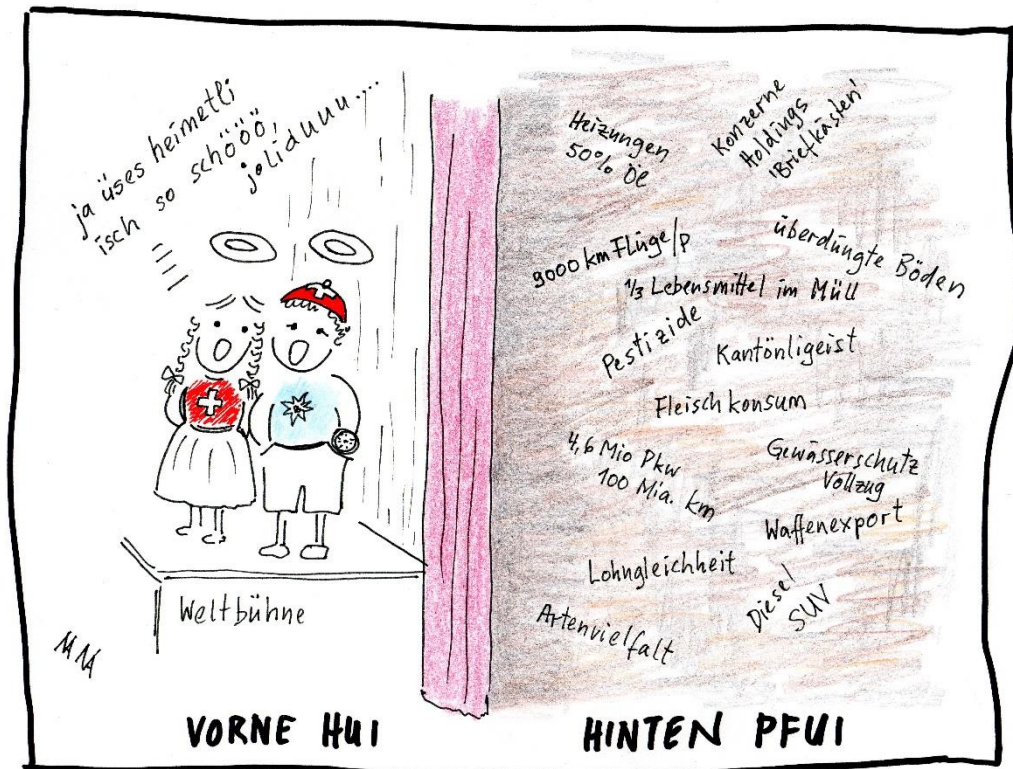 ja üses heimetli
isch so schööö,
joliduuu....
Weltbühne
VORNE HUI
Heizungen
50% Öl
Konzerne
Holdings
'Briefkästen'
9000 km Flüge/P
überdüngte Böden
1/3 Lebensmittel im Müll
Pestizide
Kantönligeist
Fleischkonsum
4,6 Mio Pkw
100 Mia. km
Gewässerschutz
Vollzug
Waffenexport
Lohngleichheit
Diesel
SUV
Artenvielfalt
HINTEN PFUI